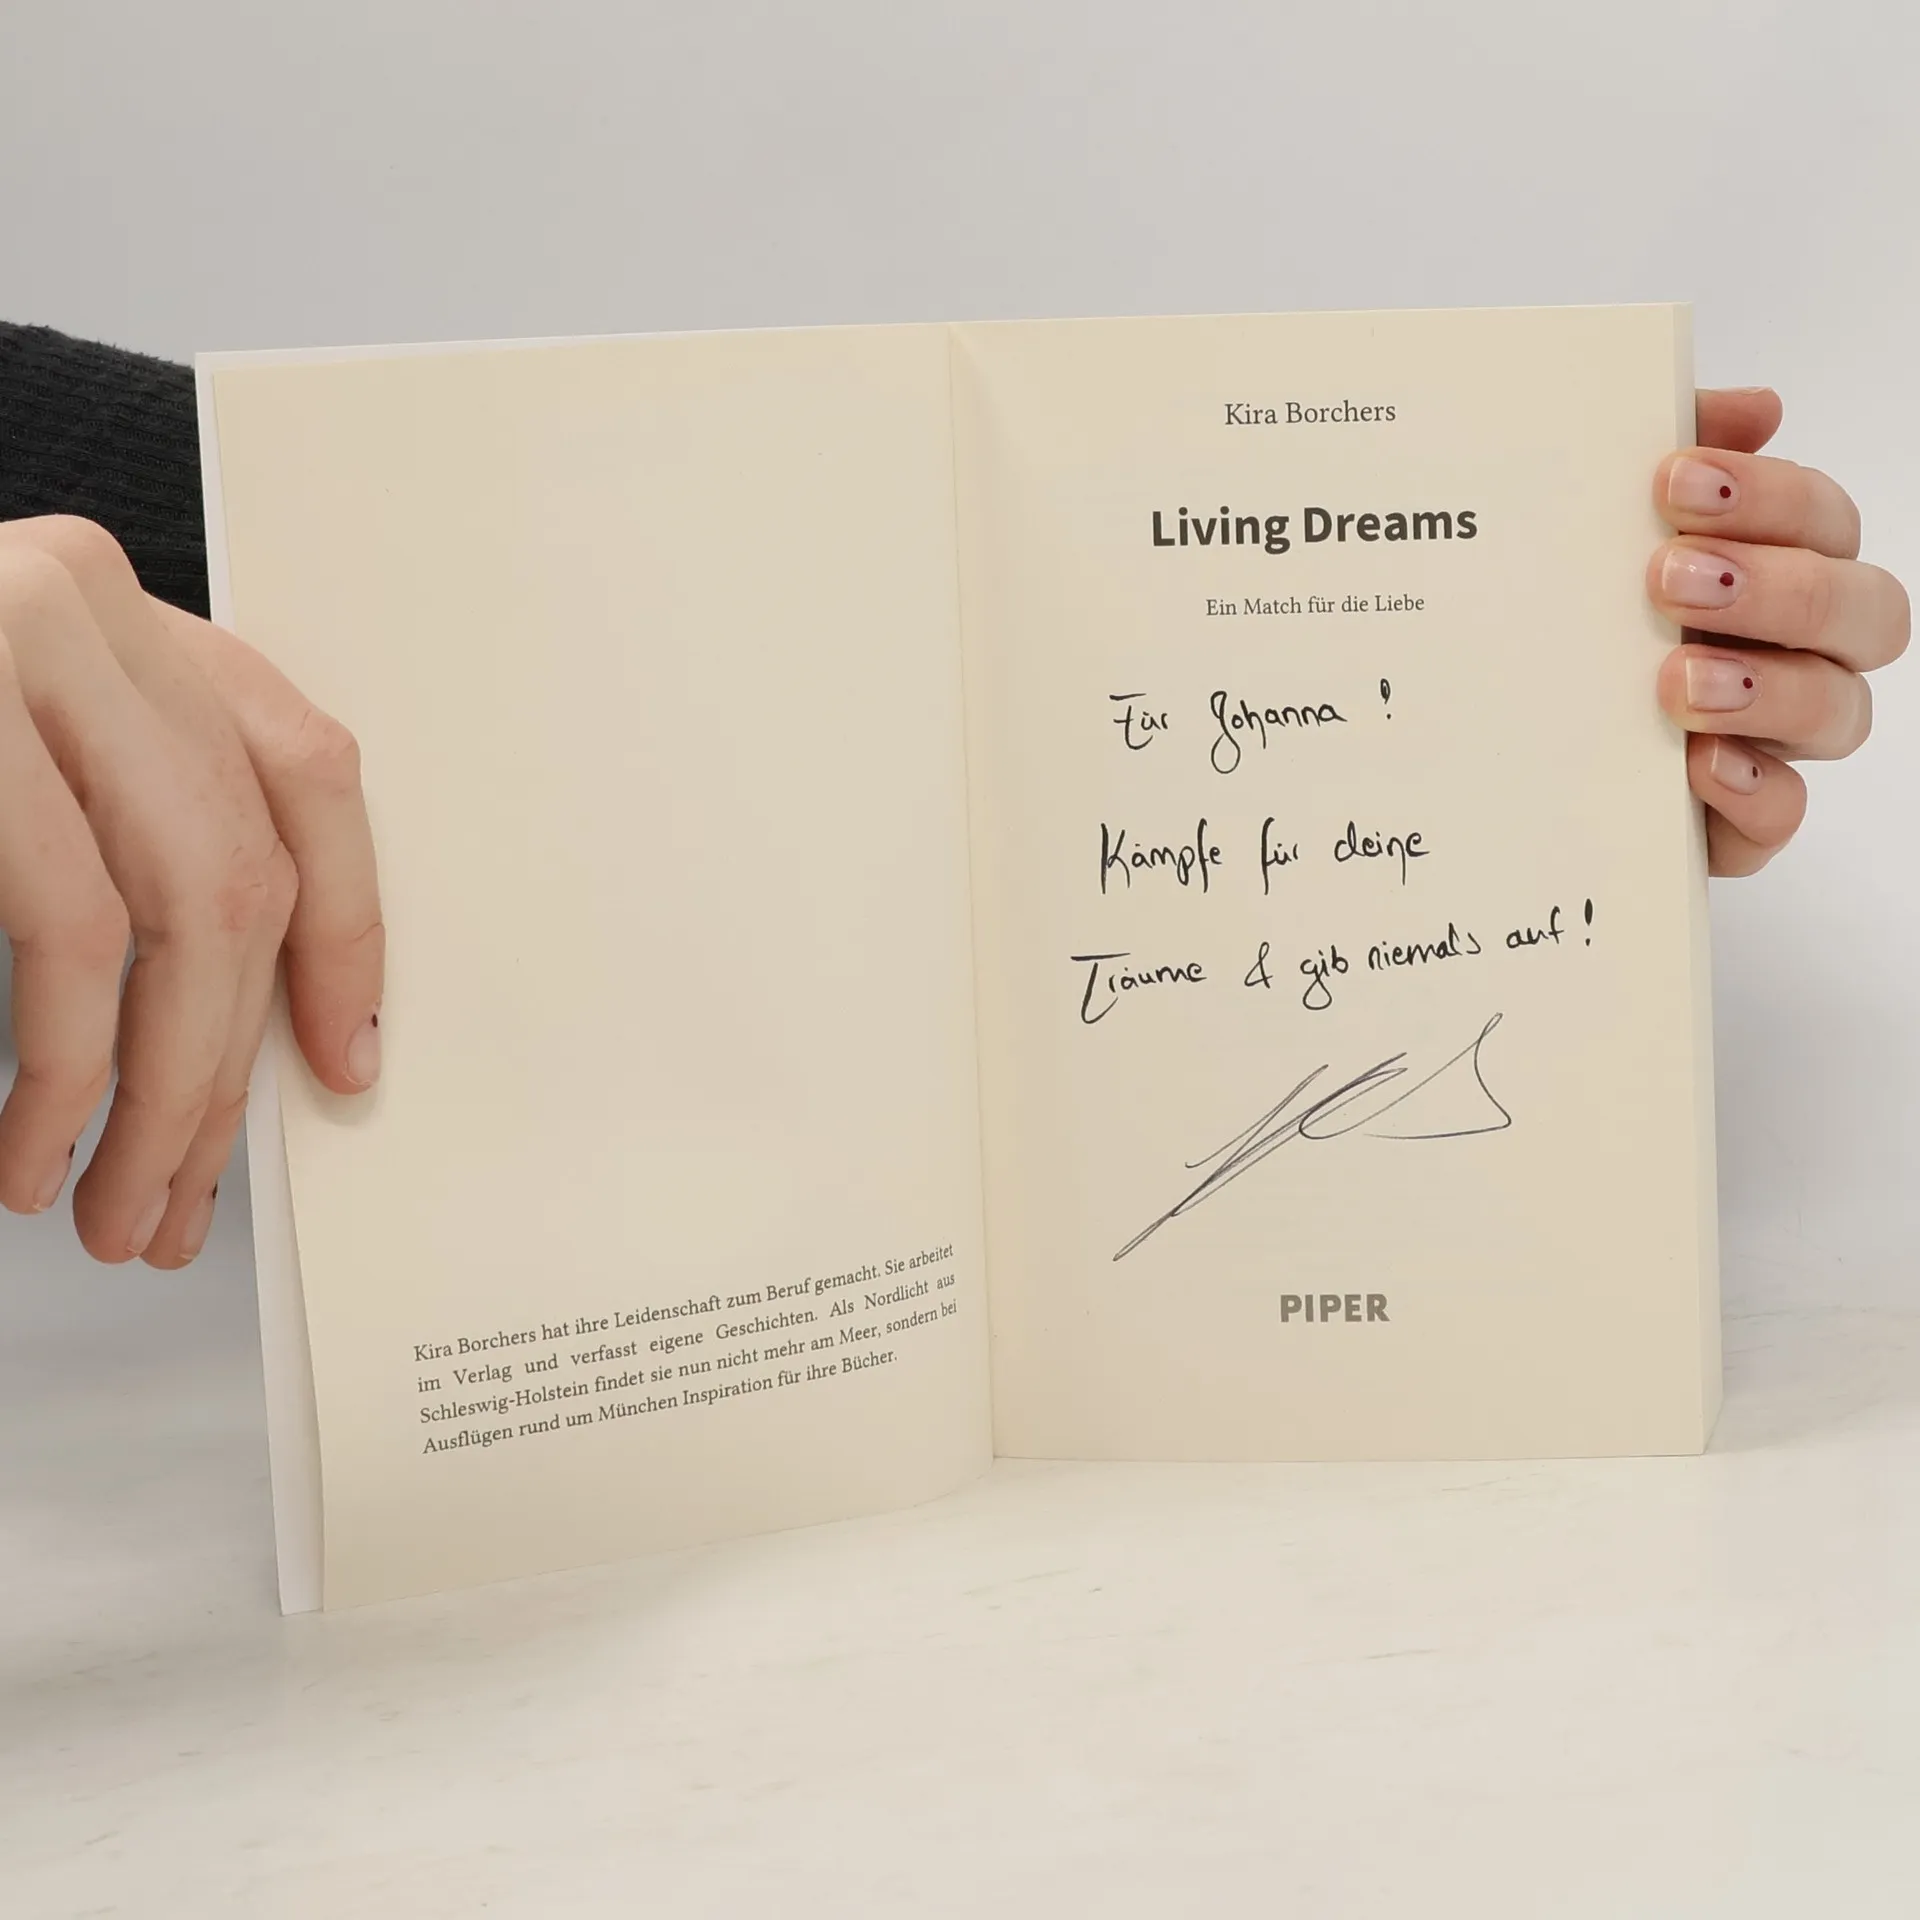 Kira Borchers hat ihre Leidenschaft zum Beruf gemacht. Sie arbeitet
im Verlag und verfasst eigene Geschichten. Als Nordlicht aus
Schleswig-Holstein findet sie nun nicht mehr am Meer, sondern bei
Ausflügen rund um München Inspiration für ihre Bücher.
Kira Borchers
Living Dreams
Ein Match für die Liebe
Für Johanna!
Kämpfe für deine
Träume & gib niemals auf!
PIPER